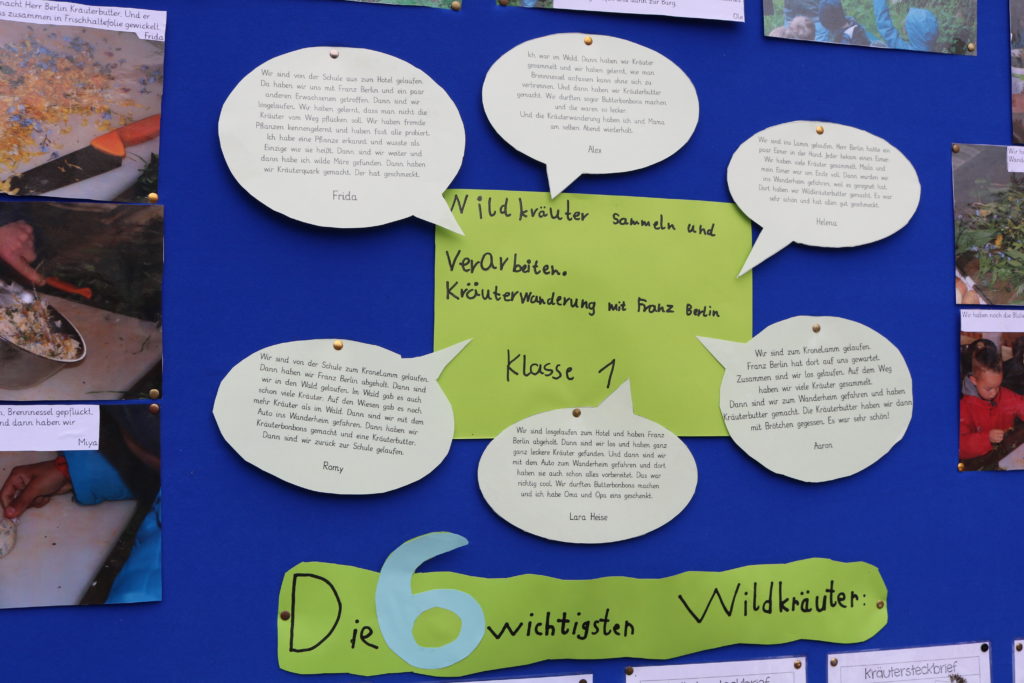 macht Herr Berlin Kräuterbutter. Und er
es zusammen in Frischhaltefolie gewickelt.
Frida
und dann zur Burg.
Ole
Wir sind von der Schule aus zum Hotel gelaufen.
Da haben wir uns mit Franz Berlin und ein paar
anderen Erwachsenen getroffen. Dann sind wir
losgelaufen. Wir haben gelernt, dass man nicht die
Kräuter vom Weg pflücken soll. Wir haben fremde
Pflanzen kennengelernt und haben fast alle probiert.
Ich habe eine Pflanze erkannt und wusste als
Einzige wie sie heißt. Dann sind wir weiter und
dann habe ich wilde Märe gefunden. Dann haben
wir Kräuterquark gemacht. Der hat geschmeckt.
Frida
Ich war im Wald. Dann haben wir Kräuter
gesammelt und wir haben gelernt, wie man
Brennnessel anfassen kann ohne sich zu
verbrennen. Und dann haben wir Kräuterbutter
gemacht. Wir durften sogar Butterbonbons machen
und die waren so lecker.
Und die Kräuterwanderung haben ich und Mama
am selben Abend wiederholt.
Alex
Wir sind ins Lamm gelaufen. Herr Berlin hatte ein
paar Eimer in der Hand. Jeder bekam einen Eimer.
Wir haben viele Kräuter gesammelt.
mein Eimer war am Ende voll. Dann wurden wir
ins Wanderheim gefahren, weil es geregnet hat.
Dort haben wir Wildkräuterbutter gemacht. Es war
sehr schön und hat allen gut geschmeckt.
Helena
Wildkräuter sammeln und
verarbeiten.
Kräuterwanderung mit Franz Berlin
Klasse 1
Wir sind von der Schule zum KroneLamm gelaufen.
Dann haben wir Franz Berlin abgeholt. Dann sind
wir in den Wald gelaufen. Im Wald gab es auch
schon viele Kräuter. Auf den Wiesen gab es noch
mehr Kräuter als im Wald. Dann sind wir mit dem
Auto ins Wanderheim gefahren. Dann haben wir
Kräuterbonbons gemacht und eine Kräuterbutter.
Dann sind wir zurück zur Schule gelaufen.
Romy
Wir sind losgelaufen zum Hotel und haben Franz
Berlin abgeholt. Dann sind wir los und haben ganz
ganz leckere Kräuter gefunden. Und dann sind wir
mit dem Auto zum Wanderheim gefahren und dort
haben sie auch schon alles vorbereitet. Das war
richtig cool. Wir durften Butterbonbons machen
und ich habe Oma und Opa eins geschenkt.
Lara Heisse
Wir sind zum KroneLamm gelaufen.
Franz Berlin hat dort auf uns gewartet.
Zusammen sind wir los gelaufen. Auf dem Weg
haben wir viele Kräuter gesammelt.
Dann sind wir zum Wanderheim gefahren und haben
Kräuterbutter gemacht. Die Kräuterbutter haben wir dann
mit Brötchen gegessen. Es war sehr schön!
Aaron
Brennnessel gepflückt.
und dann haben wir
Miya
Wir haben noch die
Die 6 wichtigsten Wildkräuter:
Kräutersteckbrief